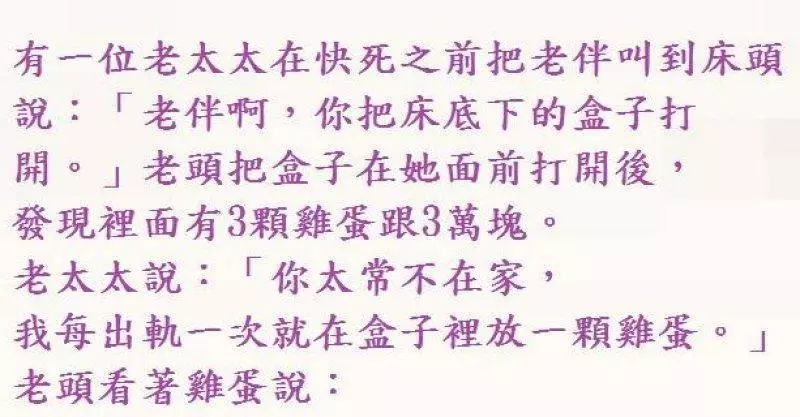 有一位老太太在快死之前把老伴叫到床頭
說：「老伴啊，你把床底下的盒子打
開。」老頭把盒子在她面前打開後，
發現裡面有3顆雞蛋跟3萬塊。
老太太說：「你太常不在家，
我每出軌一次就在盒子裡放一顆雞蛋。」
老頭看著雞蛋說：